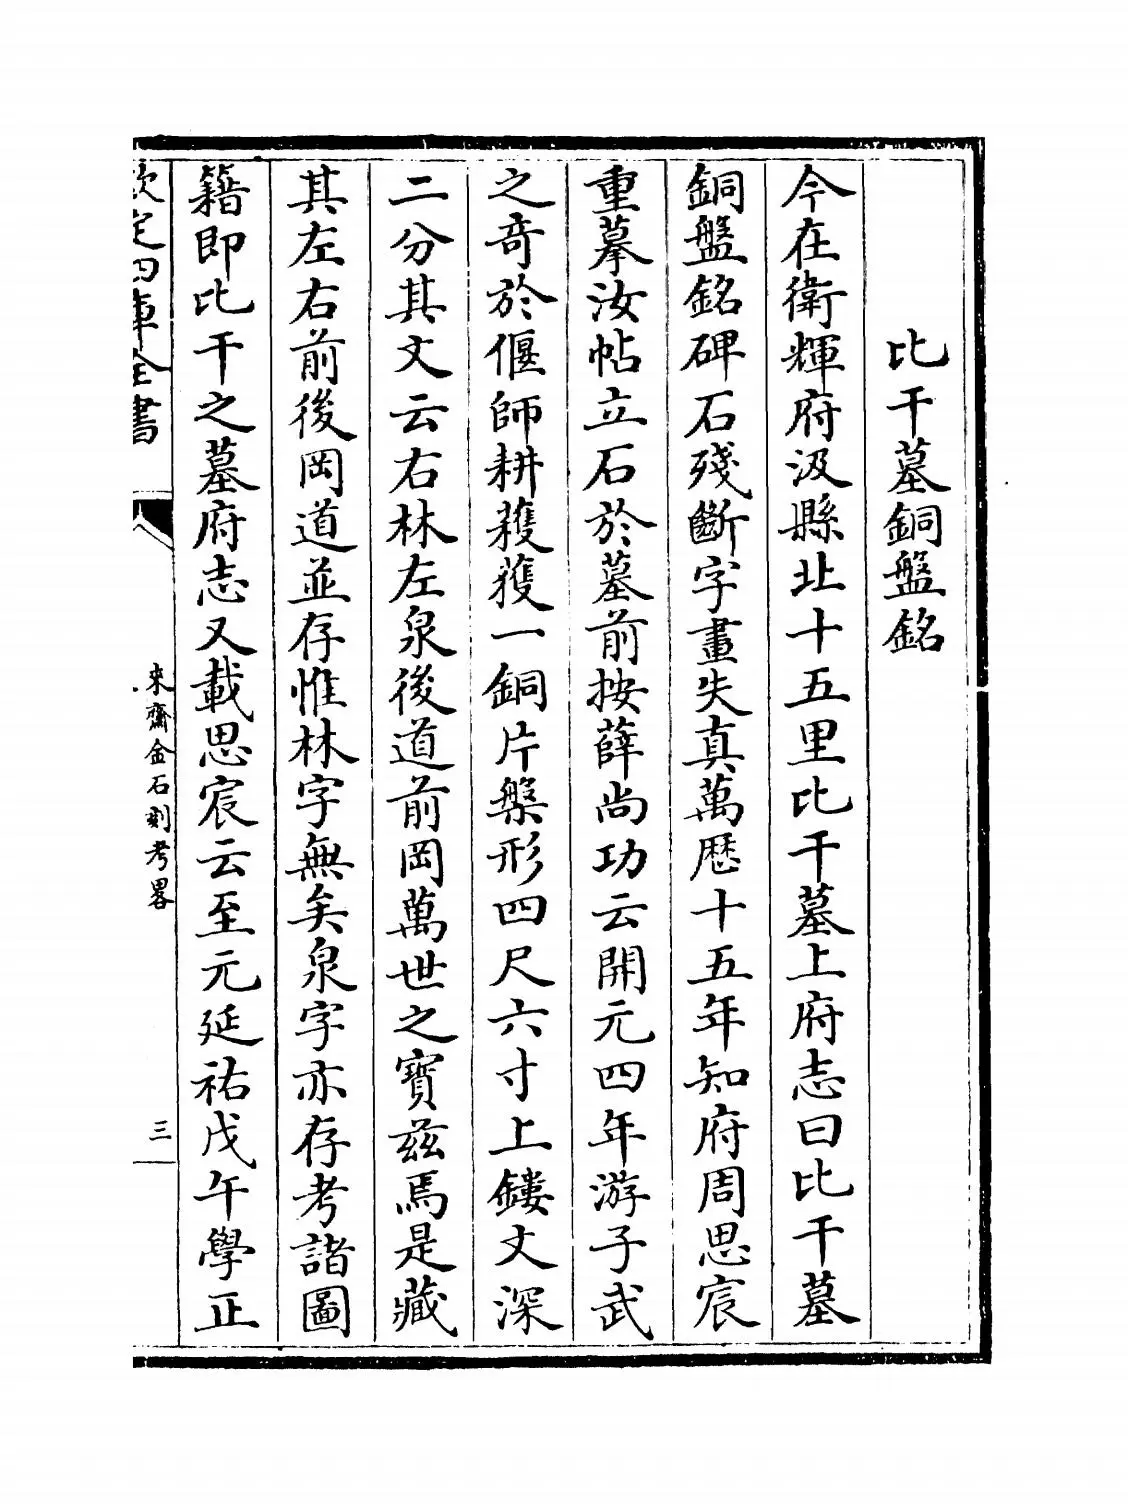 比干墓銅盤銘
今在衛輝府汲縣北十五里比干墓上府志曰比干墓
銅盤銘碑石殘斷字畫失真萬歷十五年知府周思宸
重摹汝帖立石於墓前按薛尚功云開元四年游子武
之奇於偃師耕穫獲一銅片槃形四尺六寸上鏤文深
二分其文云右林左泉後道前岡萬世之寶兹焉是藏
其左右前後岡道並存惟林字無矣泉字亦存考諸圖
籍即比干之墓府志又載思宸云至元延祐戊午學正
欽定四庫全書
來齋金石刻考畧
三